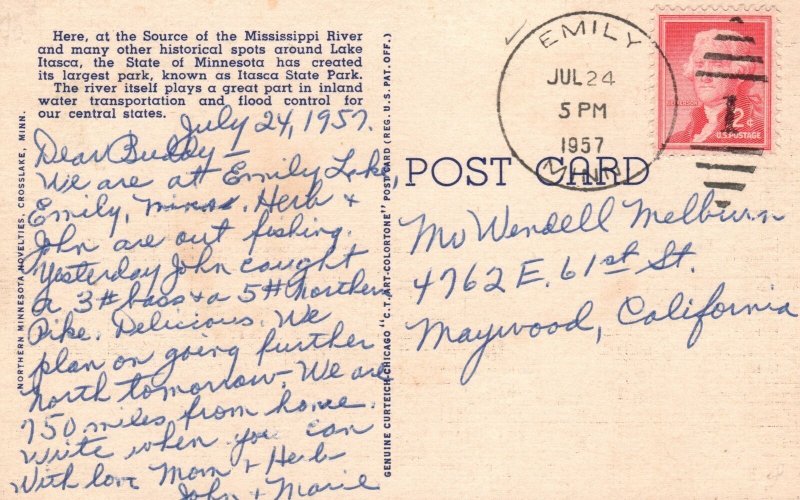 Here, at the Source of the Mississippi River
and many other historical spots around Lake
Itasca, the State of Minnesota has created
its largest park, known as Itasca State Park.
The river itself plays a great part in inland
water transportation and flood control for
our central states.
July 24, 1957.
Dear Buddy—
We are at Emily Lake,
Emily, Minn. Herb &
John are out fishing.
Yesterday John caught
a 3# bass & a 5# northern
Pike. Delicious. We
plan on going further
north tomorrow. We are
750 miles from home.
Write when you can
With love Mom & Herb
John & Marie
NORTHERN MINNESOTA NOVELTIES, CROSSLAKE, MINN.
GENUINE CURTEICH-CHICAGO "C.T. ART-COLORTONE" POST CARD (REG. U.S. PAT. OFF.)
EMILY
JUL 24
5 PM
1957
MINN.
JEFFERSON
2¢
U.S. POSTAGE
POST CARD
Mr Wendell Melburn
4762 E. 61st St.
Maywood, California